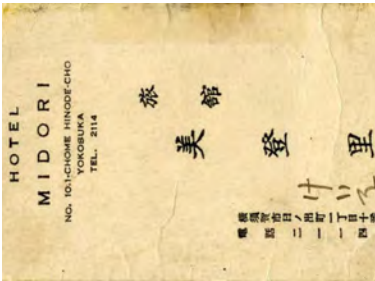 HOTEL
MIDORI
NO. 10.1-CHOME HINODE-CHO
YOKOSUKA
TEL. 2114
旅館
美登里
横須賀市日ノ出町一丁目十
電話二一一四